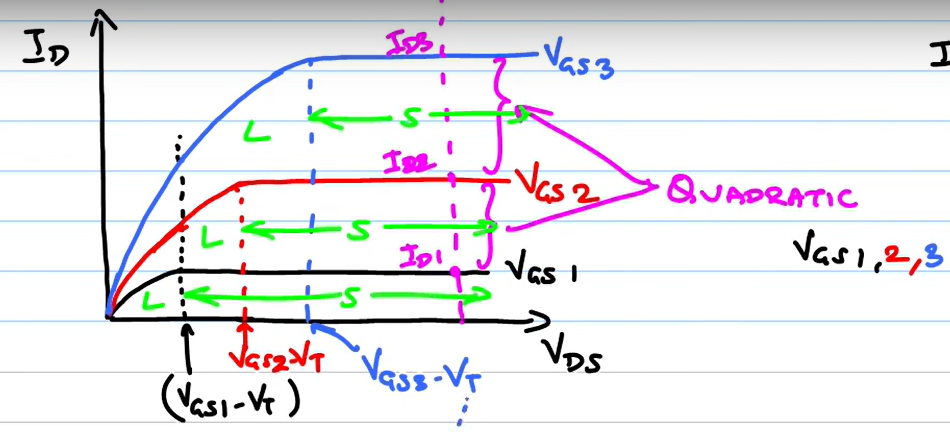 I_D
I_D3
V_GS3
L
S
I_D2
V_GS2
QUADRATIC
L
S
I_D1
V_GS1
V_GS1,2,3
L
S
V_GS2-V_T
V_GS3-V_T
V_DS
(V_GS1-V_T)
I